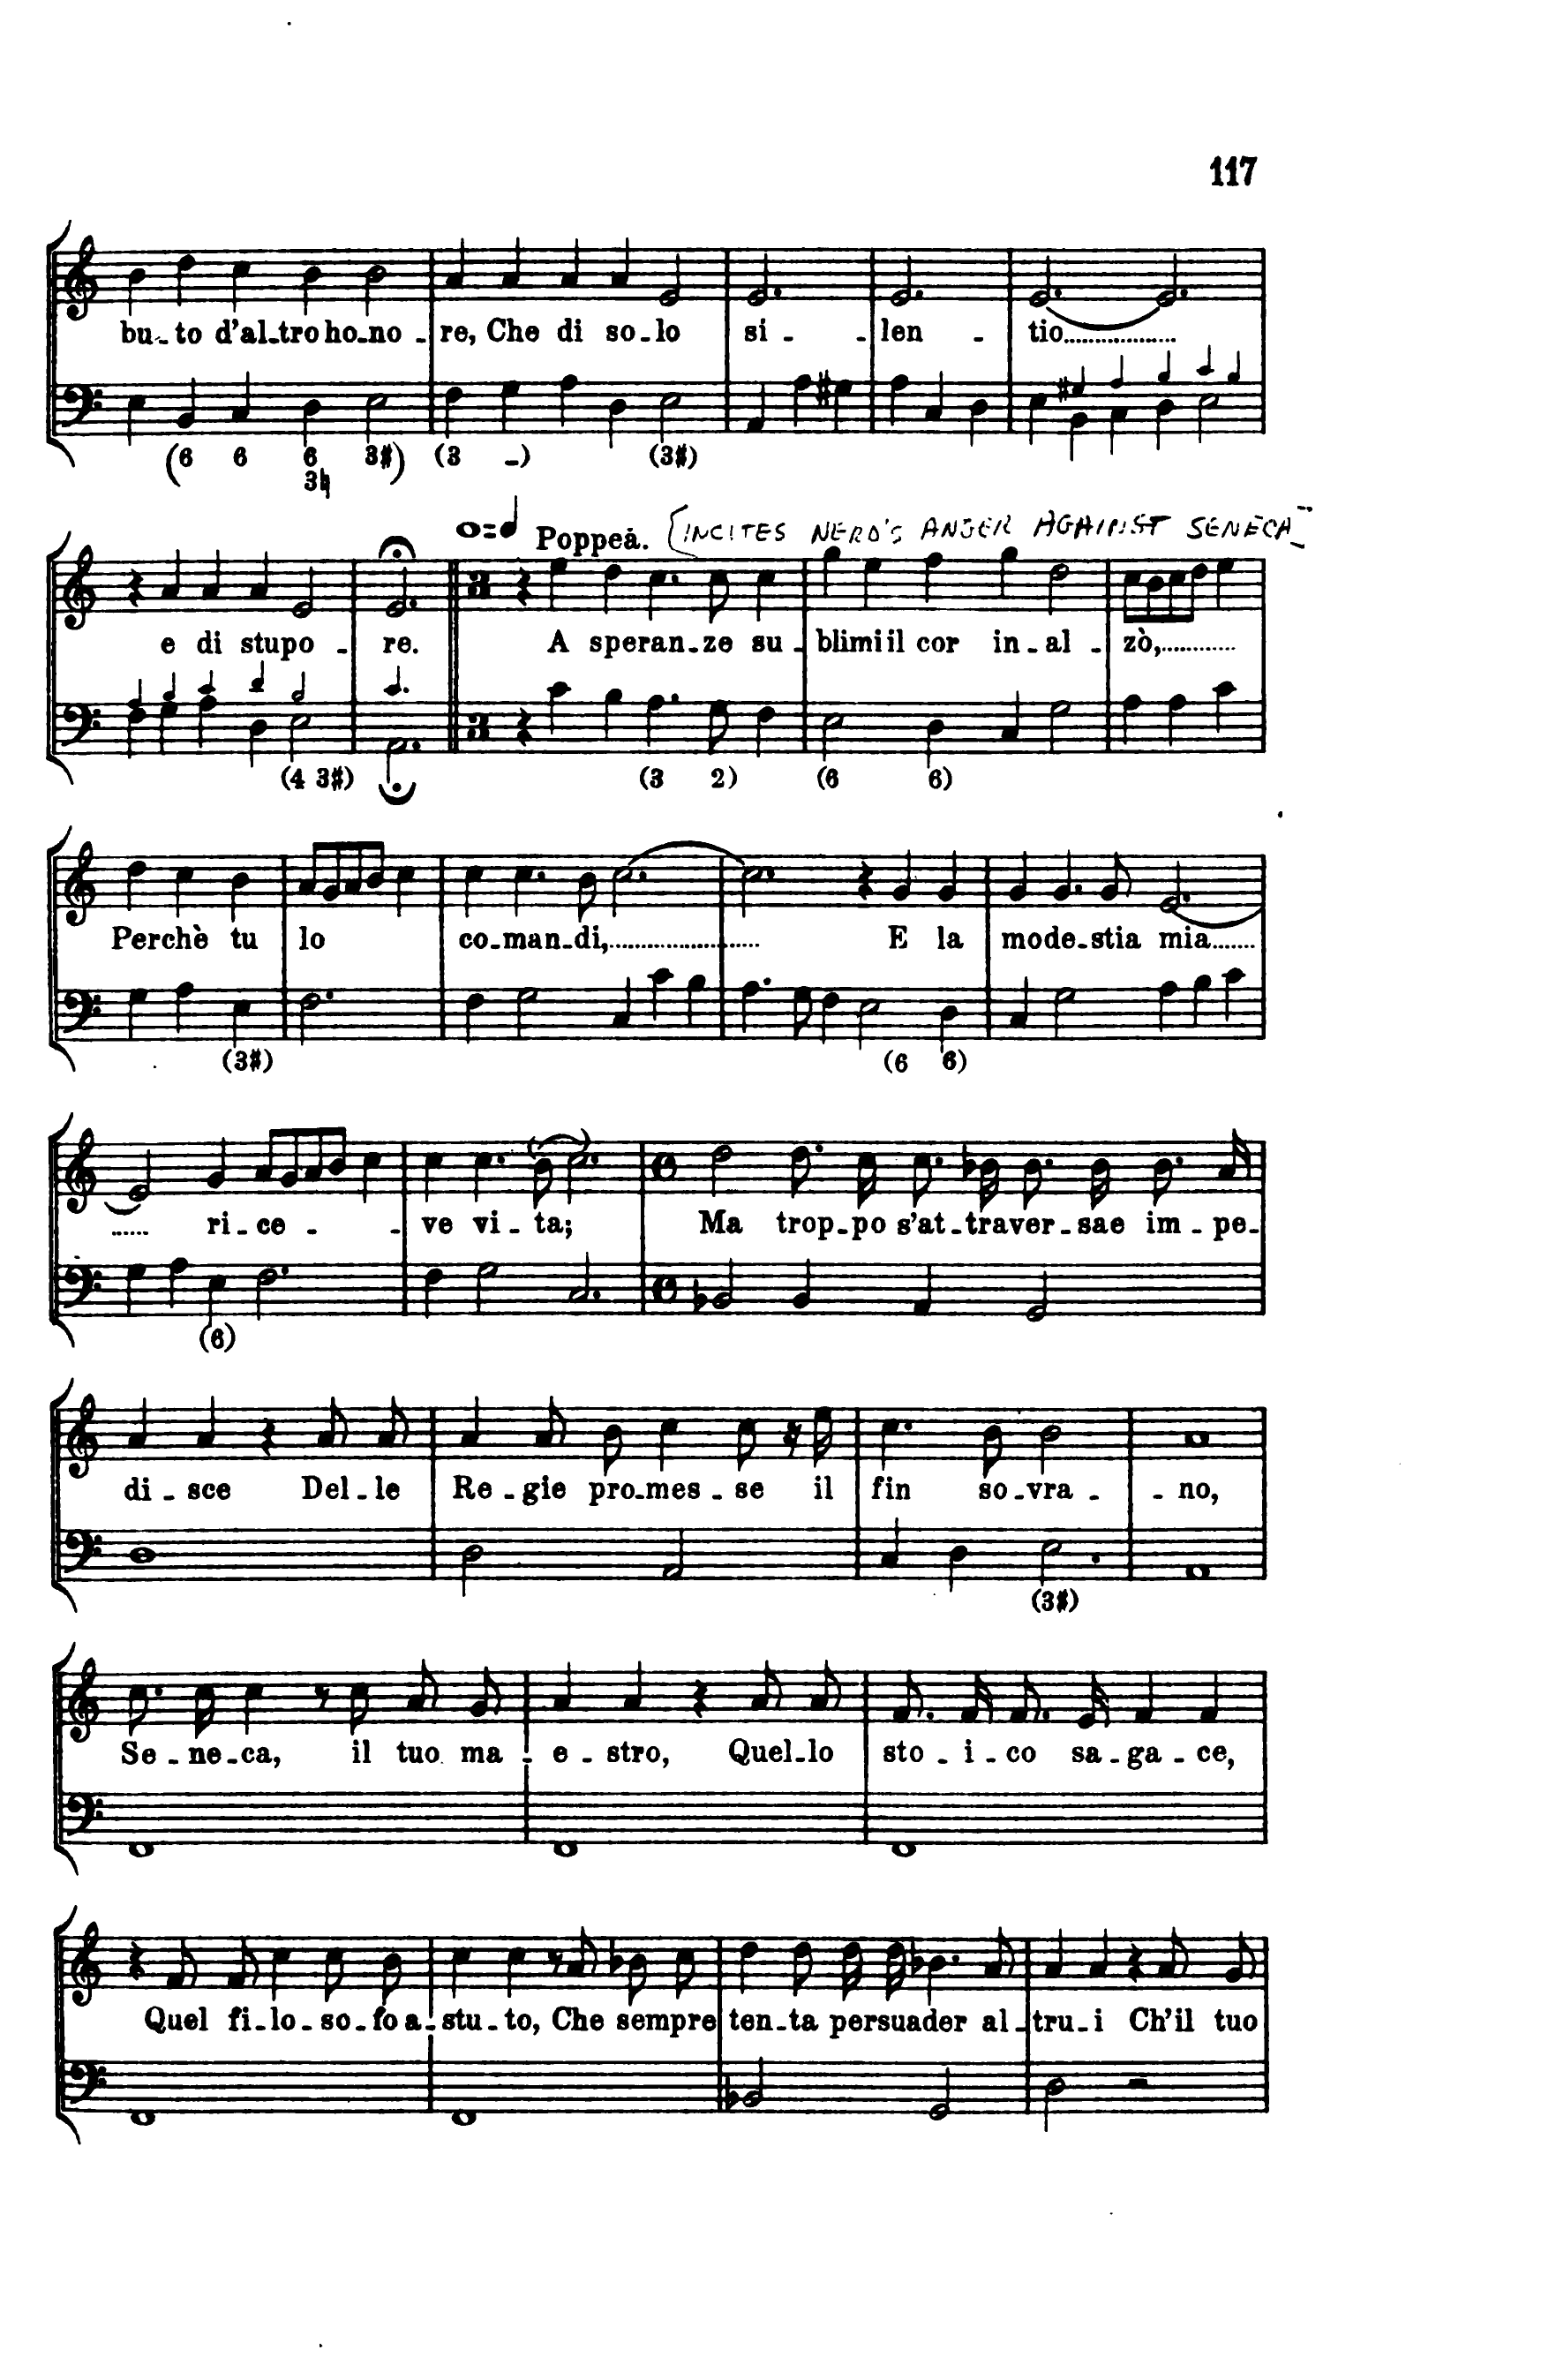 117
bu-to d'al-tro ho-no-re, Che di so-lo si-len-tio...................
(6 6 6 3#) (3 -) (3#)
3♮
Poppea. [INCITES NERO'S ANGER AGAINST SENECA]
e di stupo-re. A speran-ze su-blimi il cor in-al-zò,............
(4 3#) (3 2) (6 6)
Perchè tu lo co-man-di,........................ E la mode-stia mia.......
(3#) (6 6)
...... ri-ce-ve vi-ta; Ma trop-po s'at-traver-sae im-pe-
(6)
di-sce Del-le Re-gie pro-mes-se il fin so-vra-no,
(3#)
Se-ne-ca, il tuo ma-e-stro, Quel-lo sto-i-co sa-ga-ce,
Quel fi-lo-so-fo a-stu-to, Che sempre ten-ta persuader al-tru-i Ch'il tuo